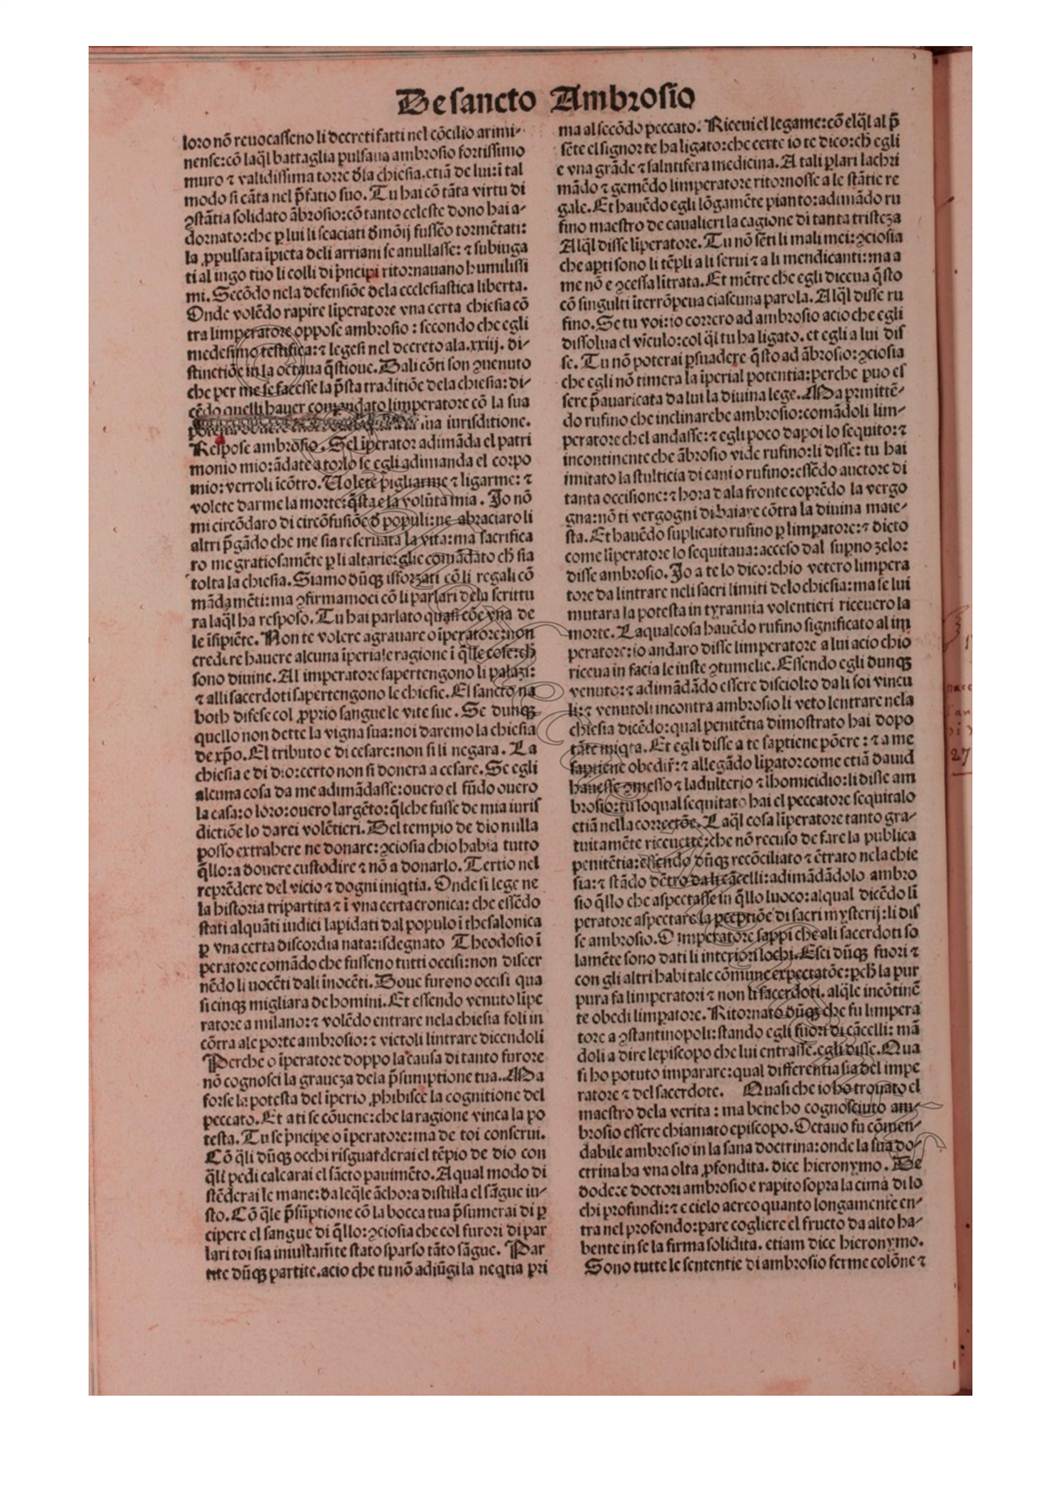 De sancto Ambrosio
loro nõ reuocasseno li decreti fatti nel cõcilio arimi-
nense: cõ laq̃l battaglia pulsaua ambrosio fortissimo
muro ⁊ validissima torre dła chiesia. etiã de lui: i tal
modo si cãta nel p̃fatio suo. Tu hai cõ tãta virtu di
ꝯstãtia solidato ãbrosio: cõ tanto celeste dono hai a-
dornato: che ꝑ lui li scaciati dmõij fusseo tormẽtati:
la ꝓpulsata ĩpieta deli arriani se anullasse: ⁊ subiuga
ti al iugo tuo li colli di p̃ncipi ritornauano humilissi
mi. Secõdo nela defensiõe dela ecclesiastica liberta.
Onde volẽdo rapire lĩperatore vna certa chiesia cõ
tra limperatore oppose ambrosio: secondo che egli
medesimo testifica: ⁊ legesi nel decreto ala. xxiij. di-
stinctiõe in la octaua q̃stioue. Dali cõti son ꝯuenuto
che per me se facesse la p̃sta traditiõe dela chiesia: di-
cẽdo quelli hauer comandato limperatore cõ la sua
iurisditione.
Respose ambrosio. Sel ĩperator adimãda el patri
monio mio: ãdate a torlo se egli adimanda el corpo
mio: verroli ĩcõtro. Uolete p̃gliarme ⁊ ligarme: ⁊
volete darme la morte: q̃sta e la volũta mia. Jo nõ
mi circõdaro di circõfusiõe d̃ populi: ne abraciaro li
altri p̃gãdo che me sia reseruata la vita: ma sacrifica
ro me gratiosamẽte ꝑ li altarie: glie comãdato ch̃ sia
tolta la chiesia. Siamo dũq̃ isforzati cõ li regali cõ
mãdamẽti: ma ꝯfirmamoci cõ li parlari dela scrittu
ra laq̃l ha resposo. Tu hai parlato quasi cõe vna de
le ĩsipiẽte. Non te volere agrauare o ĩperatore: non
credere hauere alcuna ĩperiale ragione ĩ q̃lle cose: ch̃
sono diuine. Al imperatore sapertengono li palazi:
⁊ alli sacerdoti sapertengono le chiesie. El sancto na
both difese col ꝓprio sangue le vite sue. Se dunq̃
quello non dette la vigna sua: noi daremo la chiesia
de xp̃o. El tributo e di cesare: non si li negara. La
chiesia e di dio: certo non si donera a cesare. Se egli
alcuna cosa da me adimãdasse: ouero el fũdo ouero
la casa: o loro: ouero largẽto: q̃lche fusse de mia iuris
dictiõe lo darei volẽtieri. Del tempio de dio nulla
posso extrahere ne donare: ꝯciosia chio habia tutto
q̃llo: a douere custodire ⁊ nõ a donarlo. Tertio nel
reprẽdere del vicio ⁊ dogni iniq̃tia. Onde si lege ne
la historia tripartita ⁊ ĩ vna certa cronica: che essẽdo
stati alquãti iudici lapidati dal populo ĩ thesalonica
ꝑ vna certa discordia nata: isdegnato Theodosio ĩ
peratore comãdo che fusseno tutti occisi: non discer
nẽdo li nocẽti dali ĩnocẽti. Doue furono occisi qua
si cinq̃ migliara de homini. Et essendo venuto lĩpe
ratore a milano: ⁊ volẽdo entrare nela chiesia foli in
cõtra ale porte ambrosio: ⁊ vietoli lintrare dicendoli
Perche o ĩperatore doppo la causa di tanto furore
nõ cognosci la graueza dela p̃sumptione tua. Ma
forse la potesta del ĩperio ꝓhibisce la cognitione del
peccato. Et a ti se cõuene: che la ragione vinca la po
testa. Tu se p̃ncipe o ĩperatore: ma de toi conserui.
Cõ q̃li dũq̃ occhi risguatderai el tẽpio de dio con
q̃li pedi calcarai el sãcto pauimẽto. A qual modo di
stẽderai le mane: da leq̃le ãchora distilla el sãgue iu-
sto. Cõ q̃le p̃sũptione cõ la bocca tua p̃sumerai di ꝑ
cipere el sangue di q̃llo: ꝯciosia che col furori di par
lari toi sia iniustam̃te stato sparso tãto sãgue. Par
tite dũq̃ partite. acio che tu nõ adiũgi la neq̃tia pri
ma al secõdo peccato. Riceui el legame: cõ elq̃l al p̃
sẽte el signor te ha ligato: che certe io te dico: ch̃ egli
e vna grãde ⁊ salutifera medicina. A tali plari lachri
mãdo ⁊ gemẽdo limperatore ritornosse a le stãtie re
gale. Et hauẽdo egli lõgamẽte pianto: adimãdo ru
fino maestro de caualieri la cagione di tanta tristeza
Alq̃l disse lĩperatore. Tu nõ sẽti li mali mei: ꝯciosia
che aꝑti sono li tẽpli a li serui ⁊ a li mendicanti: ma a
me nõ e ꝯcessa litrata. Et mẽtre che egli diceua q̃sto
cõ singulti ĩterrõpeua ciascuna parola. Alq̃l disse ru
fino. Se tu voi: io correro ad ambrosio acio che egli
dissolua el viculo: col q̃l tu ha ligato. et egli a lui dis
se. Tu nõ poterai ꝑsuadere q̃sto ad ãbrosio: ꝯciosia
che egli nõ timera la ĩperial potentia: perche puo es
sere p̃auaricata da lui la diuina lege. Ma p̃mittẽ-
do rufino che inclinarebe ambrosio: comãdoli lim-
peratore chel andasse: ⁊ egli poco dapoi lo seq̃uito: ⁊
incontinente che ãbrosio vide rufino: li disse: tu hai
imitato la stulticia di cani o rufino: essẽdo auctore di
tanta occisione: ⁊ hora dala fronte coprẽdo la vergo
gna: nõ ti vergogni di baiare cõtra la diuina maie-
sta. Et hauẽdo suplicato rufino ꝑ limꝑatore: ⁊ dicto
come lĩperatore lo sequitaua: acceso dal supno zelo:
disse ambrosio. Jo a te lo dico: chio vetero limpera
tore da lintrare neli sacri limiti delo chiesia: ma se lui
mutara la potesta in tyrannia volentieri riceuero la
morte. Laqualcosa hauẽdo rufino significato al im
peratore: io andaro disse limperatore a lui acio chio
riceua in facia le iuste ꝯtumelie. Essendo egli dunq̃
venuto: ⁊ adimãdãdo essere disciolto da li soi vincu
li: ⁊ venutoli incontra ambrosio li veto lentrare nela
chiesia dicẽdo: qual penitẽtia dimostrato hai dopo
tãte miqta. Et egli disse a te saptiene põere: ⁊ a me
saptiene obedir: ⁊ allegãdo lipator: come etiã dauid
hauesse ꝯmesso ⁊ ladulterio ⁊ lhomicidio: li disse am
brosio: tu loqual sequitato hai el peccatore sequitalo
etiã nella correctõe. Laq̃l cosa lĩperatore tanto gra-
tuitamẽte riceuette: che nõ recuso de fare la publica
penitẽtia: essendo dũq̃ recõciliato ⁊ ẽtrato ne la chie
sia: ⁊ stãdo dẽtro da li cãcelli: adimãdãdolo ambro
sio q̃llo che aspectasse in q̃llo luoco: alqual dicẽdo lĩ
peratore aspectare la ꝑceptiõe di sacri mysterij: li dis
se ambrosio. O imperatore sappi che ali sacerdoti so
lamẽte sono dati li interiori lochi. Esci dũq̃ fuori ⁊
con gli altri habi tale cõmune expectatõe: ꝑch̃ la pur
pura fa limperatori ⁊ non li sacerdoti. alq̃le incõtinẽ
te obedi limꝑatore. Ritornato dũq̃ che fu limpera
tore a ꝯstantinopoli: stando egli fuori di cãcelli: mã
doli a dire lepiscopo che lui entrasse. egli disse. Qua
si ho potuto imparare: qual differentia sia del impe
ratore ⁊ del sacerdote. Quasi che io ho trouato el
maestro dela verita: ma bene ho cognosciuto am-
brosio essere chiamato episcopo. Octauo fu cõmen-
dabile ambrosio in la sana doctrina: onde la sua do-
ctrina ha vna olta ꝓfondita. dice hieronymo. De
dodece doctori ambrosio e rapito sopra la cima di lo
chi profundi: ⁊ e cielo aereo quanto longamente en-
tra nel profondo: pare cogliere el fructo da alto ha-
bente in se la firma solidita. etiam dice hieronymo.
Sono tutte le sententie di ambrosio ferme colõne ⁊
27